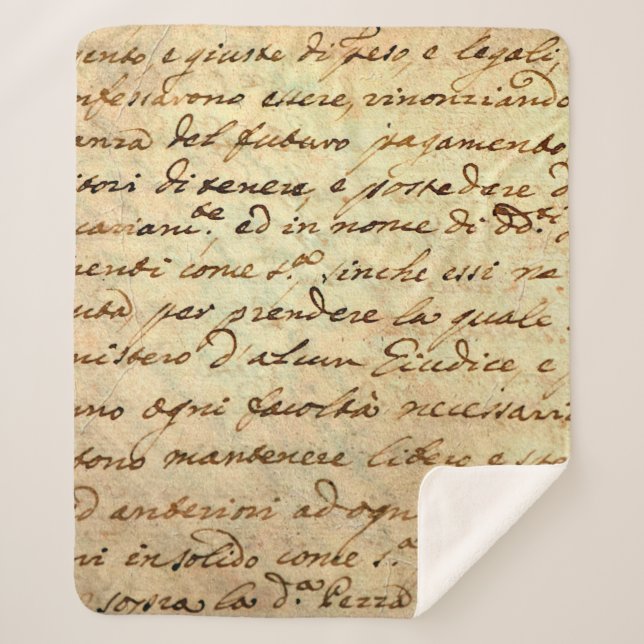 mento e giuste di Peso, e legali,
nfessarono essere, rinonziando
anza del futuro pagamento
itori di tenere, e possedere d
cariam.te ed in nome di dd.ti
menti come s.a, sinche essi ne
uta per prendere la quale
nistero d'alcun Giudice, e
nno ogni facoltà necessari
ttono mantenere libero e
d anteriori ad ogn
ni in solido come s.a
sopra la d.a Pezza